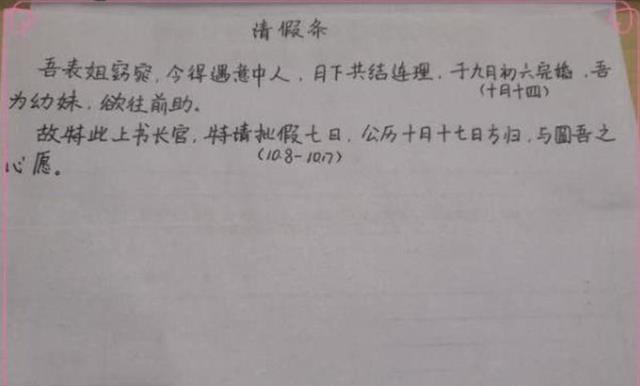 请假条
吾表姐窈窕，今得遇意中人，月下共结连理，于九月初六完婚，吾
(十月十四)
为幼妹，欲往前助。
故特此上书长官，特请批假七日，公历十月十七日方归，与圆吾之
(10.8-10.17)
心愿。